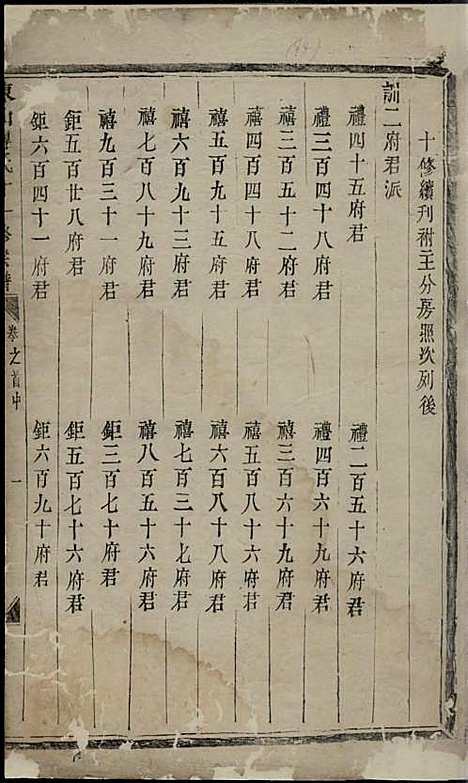 十修續刊祔主分房照次列後
訓二府君派
禮四十五府君
禮二百五十六府君
禮三百四十八府君
禮四百六十九府君
禧三百五十二府君
禧三百六十九府君
禧四百四十八府君
禧五百八十六府君
禧五百九十五府君
禧六百八十八府君
禧六百九十三府君
禧七百三十七府君
禧七百八十九府君
禧八百五十六府君
禧九百三十一府君
鉅三百七十府君
鉅五百廿八府君
鉅五百七十六府君
鉅六百四十一府君
鉅六百九十府君
卷之首中
一